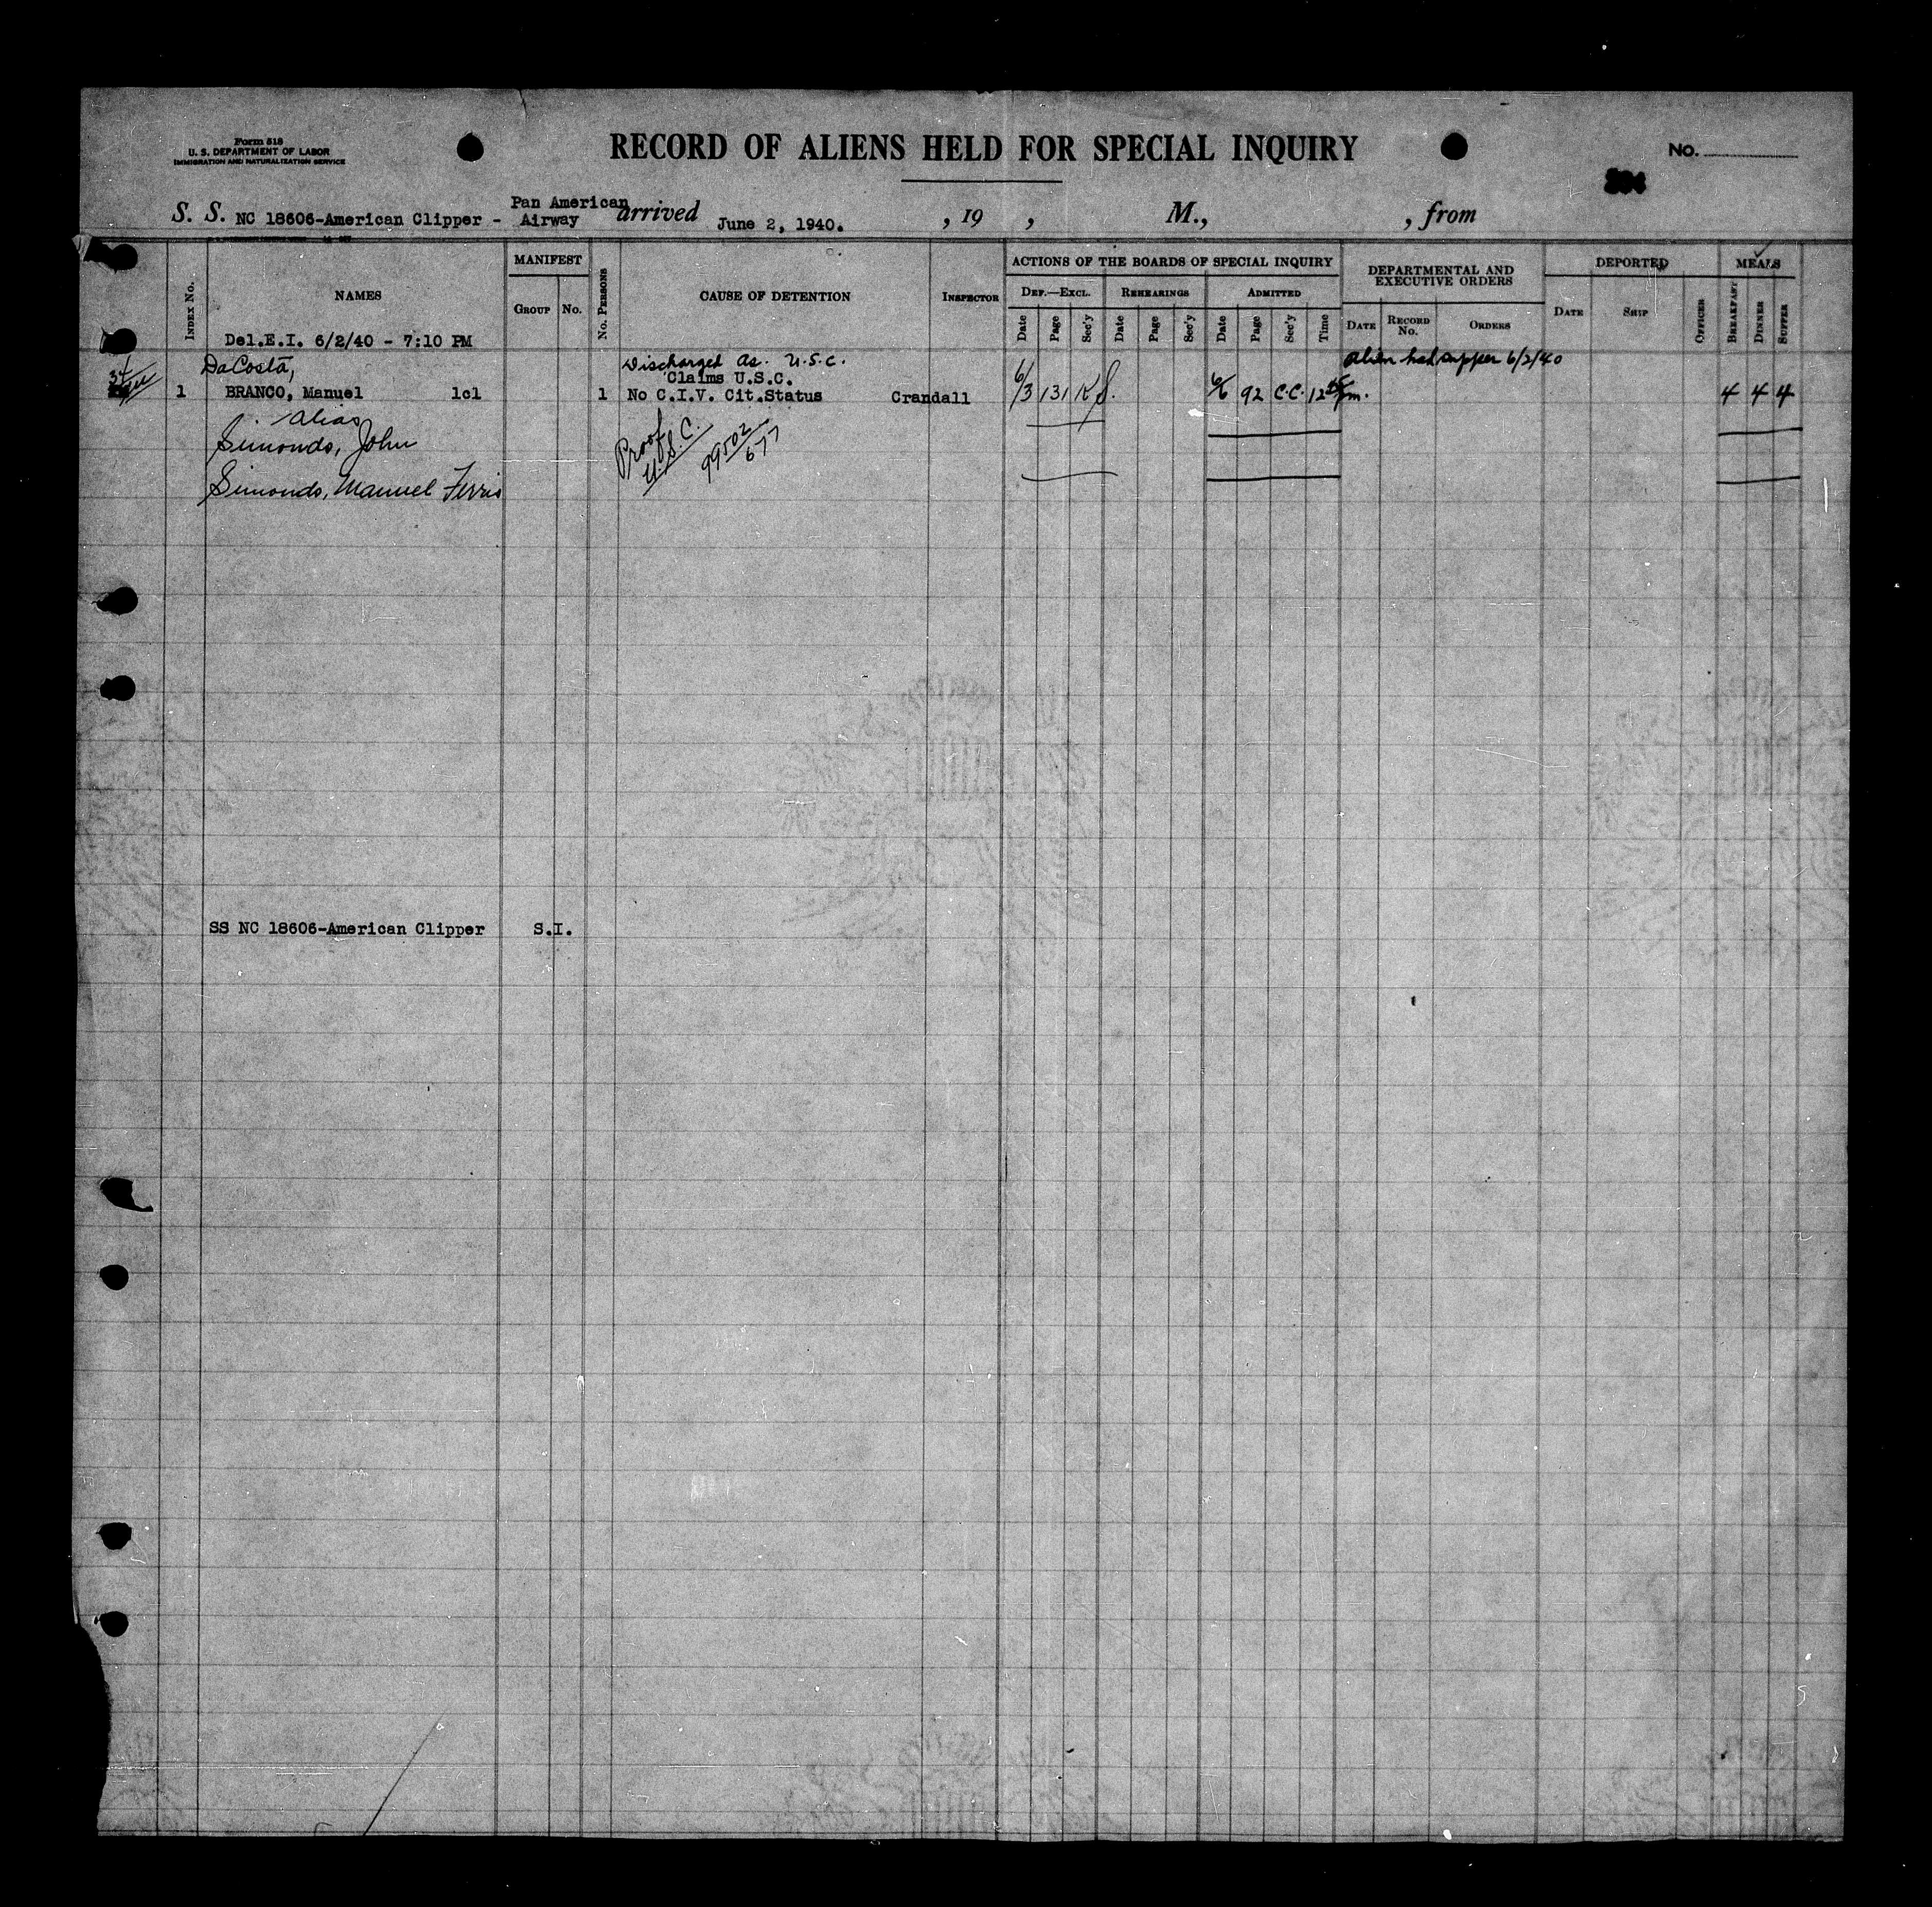 Form 518
U. S. DEPARTMENT OF LABOR
IMMIGRATION AND NATURALIZATION SERVICE
RECORD OF ALIENS HELD FOR SPECIAL INQUIRY
No.
S. S. NC 18606-American Clipper - Pan American Airway arrived June 2, 1940. , 19 , M., , from
INDEX No.
NAMES
MANIFEST
GROUP No.
No. PERSONS
CAUSE OF DETENTION
INSPECTOR
ACTIONS OF THE BOARDS OF SPECIAL INQUIRY
DEF.—EXCL. REHEARINGS ADMITTED
Date Page Sec'y Date Page Sec'y Date Page Sec'y Time
DEPARTMENTAL AND
EXECUTIVE ORDERS
DATE RECORD No. ORDERS
DEPORTED
DATE SHIP OFFICER
MEALS
BREAKFAST DINNER SUPPER
Del.E.I. 6/2/40 - 7:10 PM
DaCosta, Discharged as. U.S.C. alien had supper 6/2/40
Claims U.S.C.
1 BRANCO, Manuel 1cl 1 No C.I.V. Cit.Status Crandall 6/3 131 92 C.C. 4 4 4
alias
Simonds, John
Proof
U.S.C.
99502
677
Simonds, Manuel Ferris
SS NC 18606-American Clipper S.I.